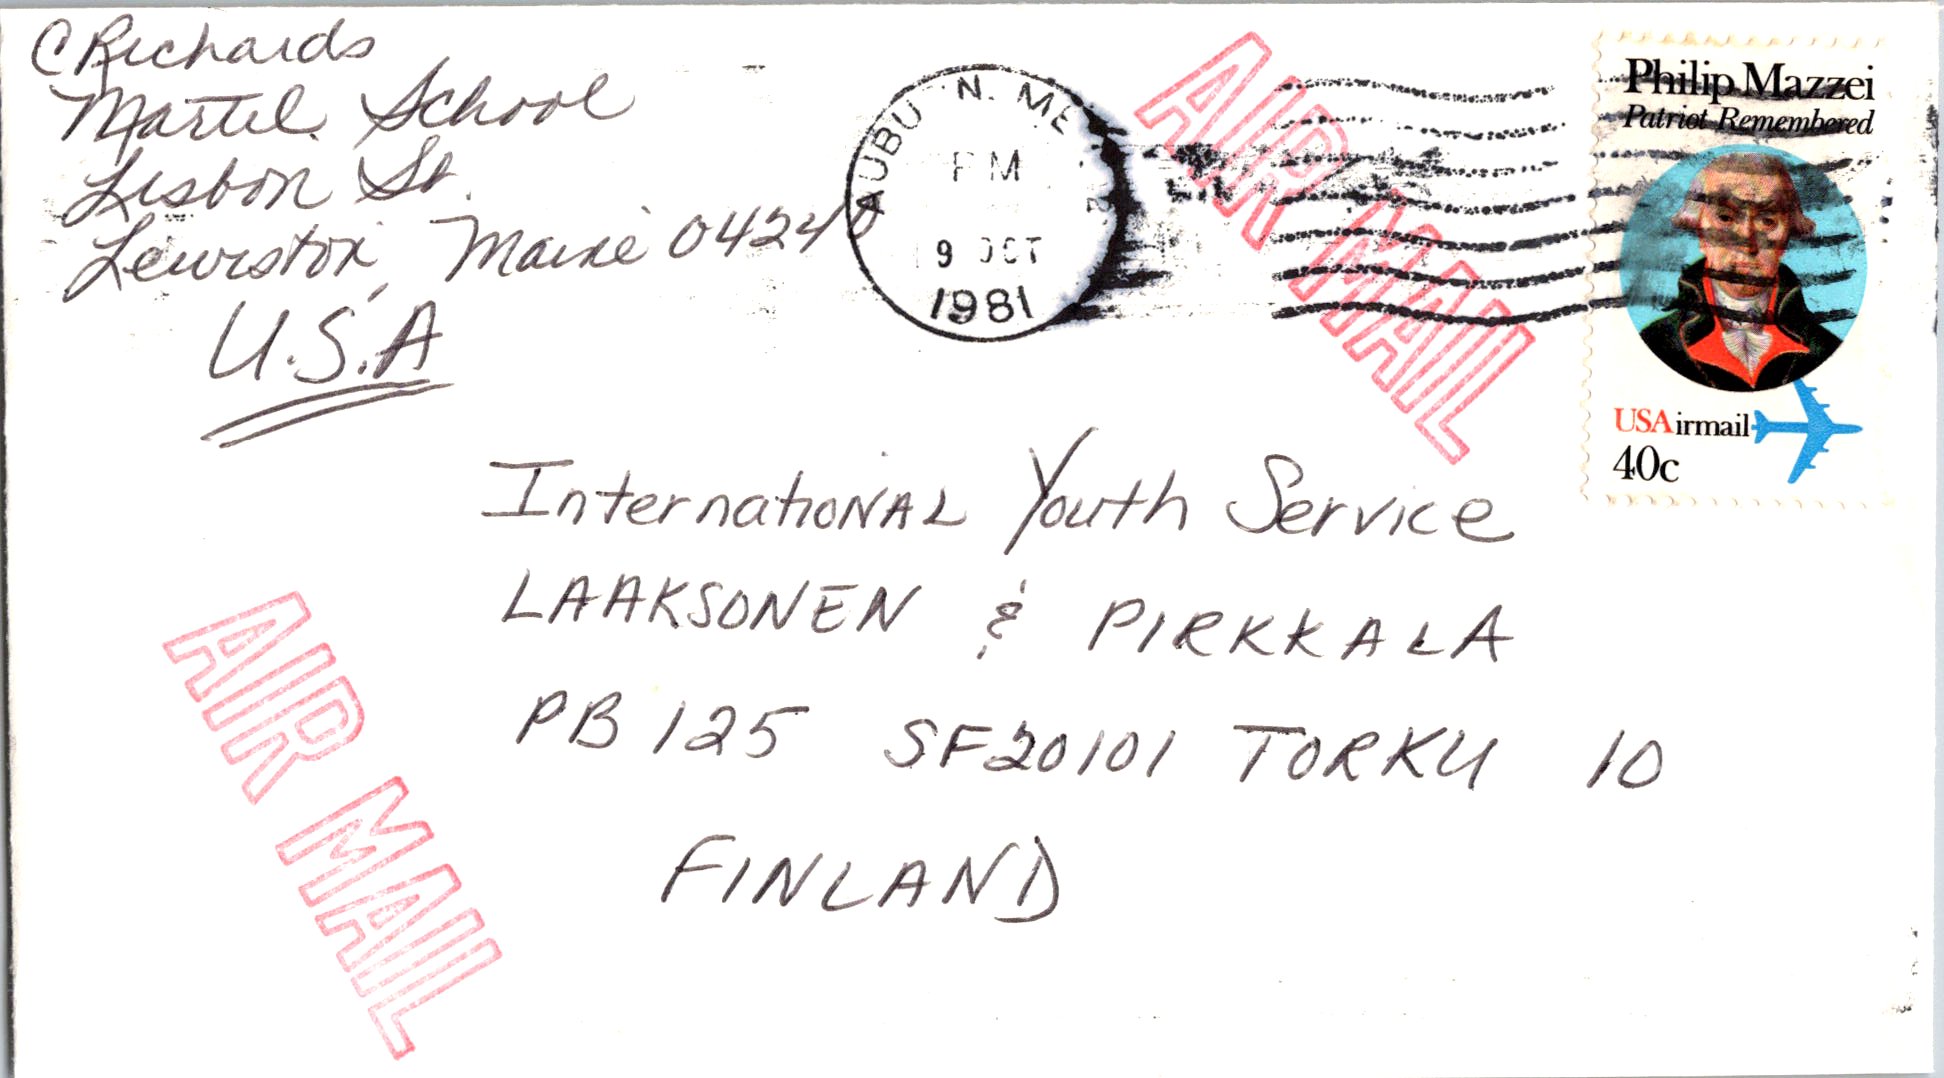 C Richards
Martel School
Lisbon St.
Lewiston, Maine 04240
U.S.A
AUBU N. ME
PM
9 OCT
1981
AIR MAIL
Philip Mazzei
Patriot Remembered
USAirmail
40c
International Youth Service
LAAKSONEN & PIRKKALA
PB 125 SF20101 TORKU 10
FINLAND
AIR MAIL